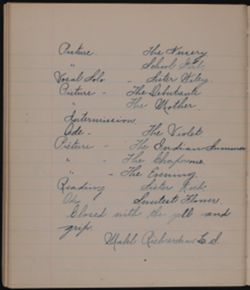 Picture The Nursery
" School Girl
Vocal Solo - Sister Wiley
Picture - The Debutante
" The Mother
Intermission
Ode - The Violet
Picture - The Indian Summer
" - The Chaperone
" - The Evening
Reading Sister
Ode Sweetest Flower
Closed with the yell and
grip.
Mabel Richardson